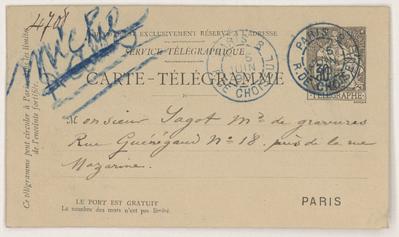 4708
Miche
EXCLUSIVEMENT RÉSERVÉ À L'ADRESSE
SERVICE TÉLÉGRAPHIQUE
CARTE-TÉLÉGRAMME
PARIS
R. DE CHOISEUL
PARIS
R. DE CHOISEUL
TÉLÉGRAPHE
Ce télégramme peut circuler à Paris, dans les limites
de l'enceinte fortifiée.
Monsieur Sagot Md de gravures
Rue Guénégaud No 18. près de la rue
Mazarine.
LE PORT EST GRATUIT
Le nombre des mots n'est pas limité.
PARIS